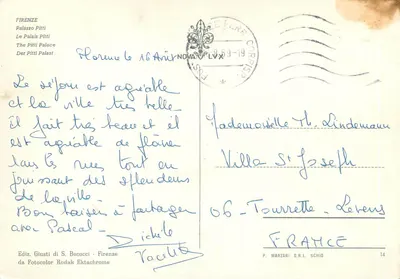 FIRENZE
Palazzo Pitti
Le Palais Pitti
The Pitti Palace
Der Pitti Palast
Florence le 16 Août
NOVA LVX
Le séjour est agréable
et la ville très belle
il fait très beau et il
est agréable de flâner
les rues tout en
jouissant des splendeurs
de la ville.
Bons baisers à partager
avec Pascal.
Michèle
Mademoiselle Th. Lindemann
Villa St Joseph
06 - Tourrette - Levens
FRANCE
Ediz. Giusti di S. Becocci - Firenze
da Fotocolor Kodak Ektachrome
14